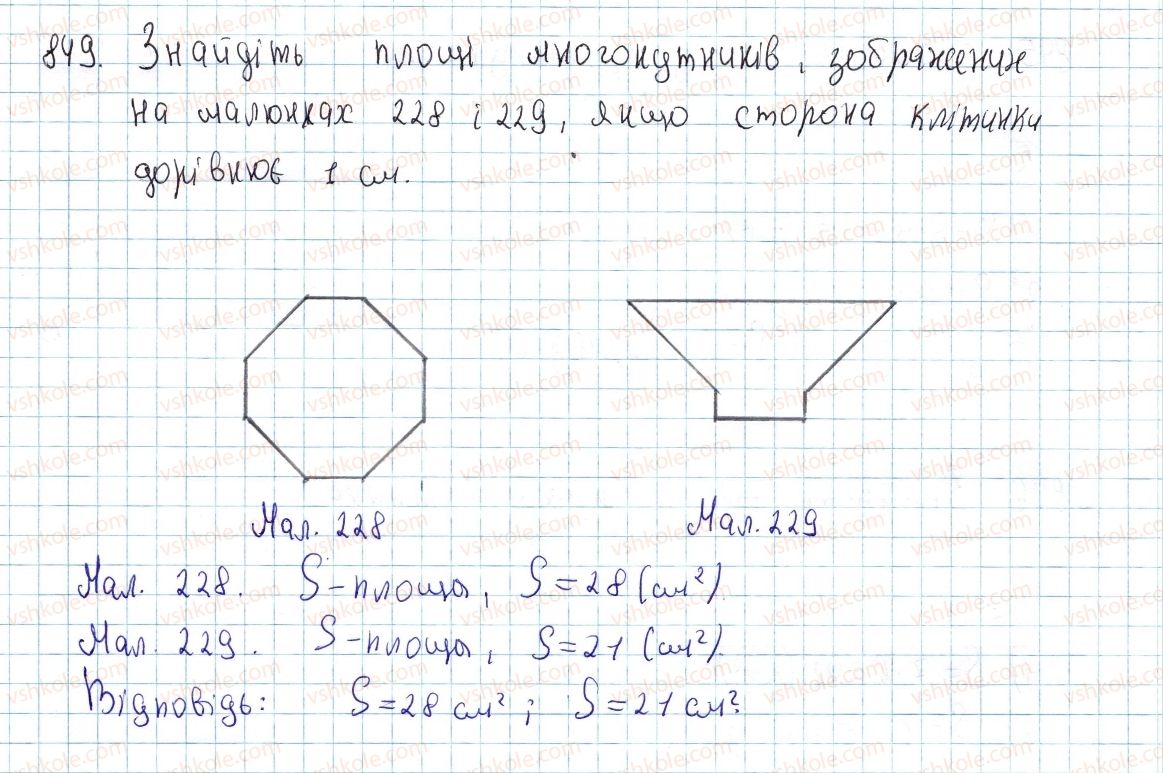 849. Знайдіть площі многокутників, зображених
на малюнках 228 і 229, якщо сторона клітинки
дорівнює 1 см.
Мал. 228
Мал. 229
Мал. 228. S - площа, S = 28 (см²).
Мал. 229. S - площа, S = 21 (см²).
Відповідь: S = 28 см²; S = 21 см².
vshkole.com